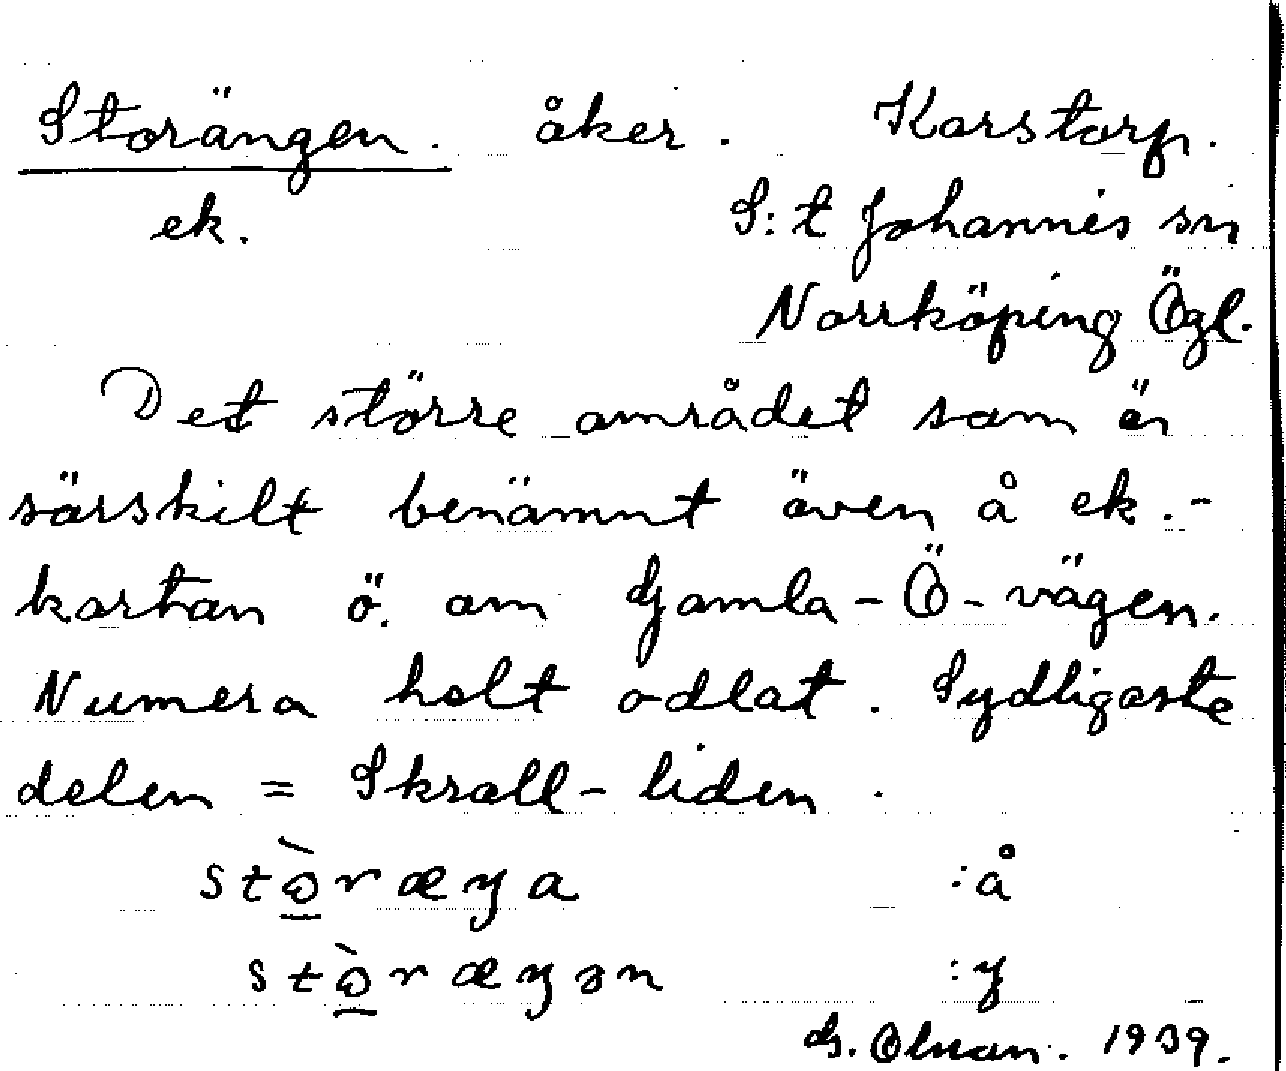 Storängen. åker. Karstorp.
ek. S:t Johannis sn
Norrköping Ögl.
Det större området som är
särskilt benämnt även å ek.-
kartan ö. om Gamla-Ö-vägen.
Numera helt odlat. Sydligaste
delen = Skrall-liden.
stò̱ræŋa :å
stò̱ræŋən :y
G. Olsson. 1939.